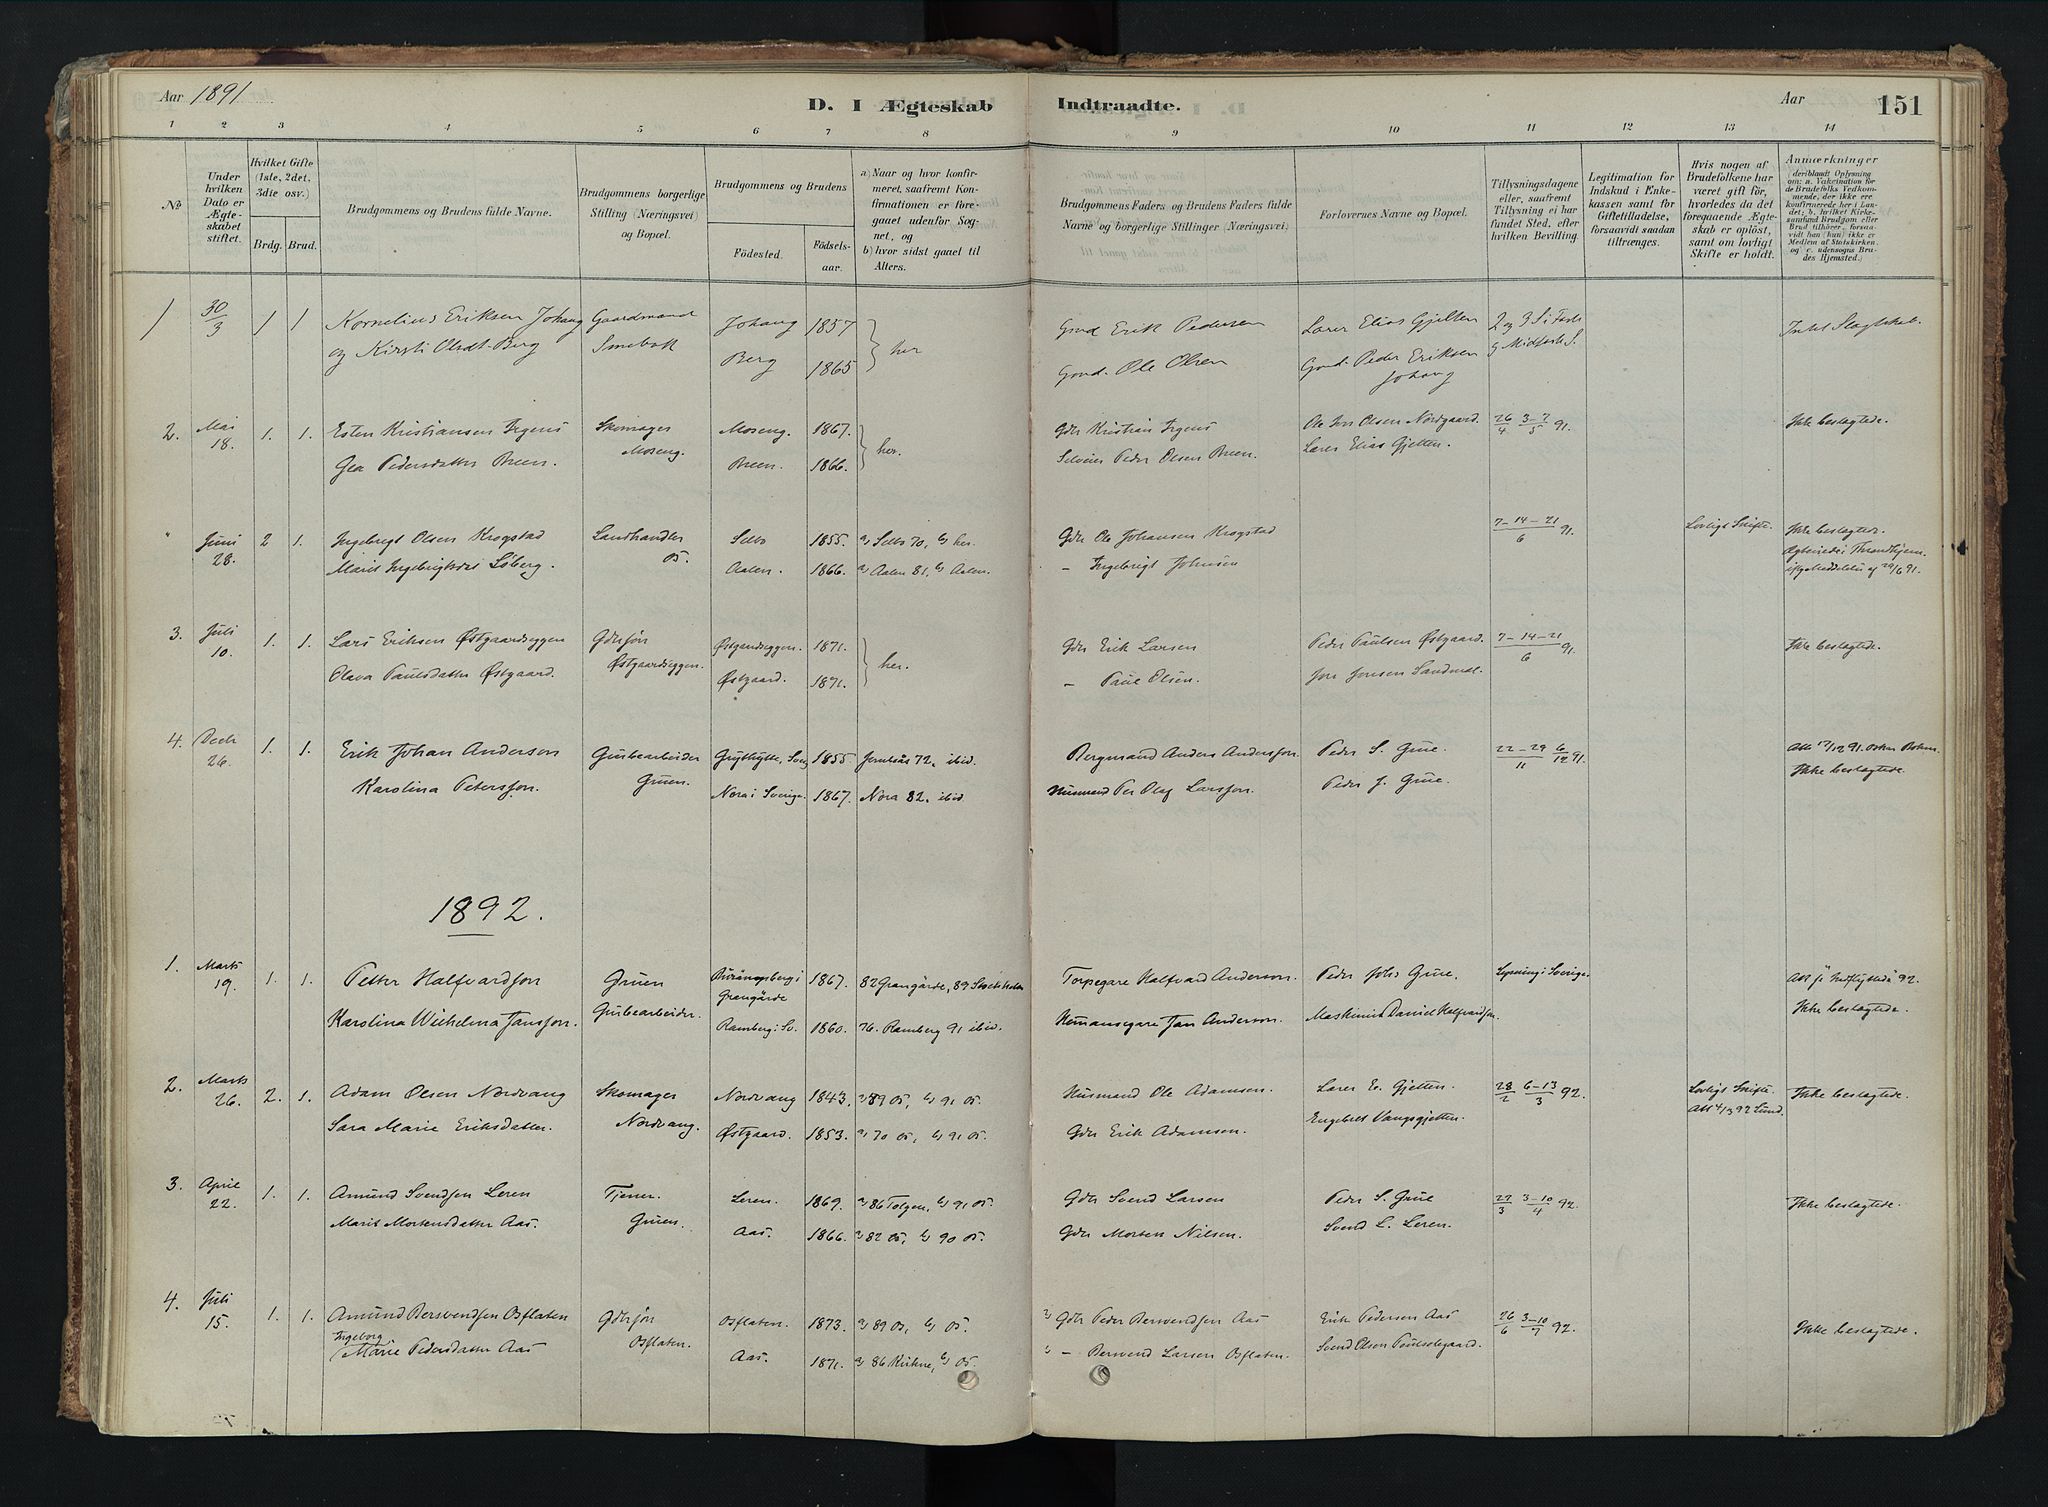 Aar 1891
D. I Ægteskab Indtraadte.
Aar 151
1 2 3 4 5 6 7 8 9 10 11 12 13 14
No
Under hvilken Dato er Ægteskabet stiftet.
Hvilket Gifte (1ste, 2det, 3die osv.)
Brdg. Brud.
Brudgommens og Brudens fulde Navne.
Brudgommens borgerlige Stilling (Næringsvei) og Bopæl.
Brudgommens og Brudens
Födested. Födselsaar.
a) Naar og hvor konfirmeret, saafremt Konfirmationen er foregaaet udenfor Sognet, og
b) hvor sidst gaaet til Alters.
Brudgommens Faders og Brudens Faders fulde Navne og borgerlige Stillinger (Næringsvei)
Forlovernes Navne og Bopæl.
Tillysningsdagene eller, saafremt Tillysning ei har fundet Sted, efter hvilken Bevilling.
Legitimation for Indskud i Enkekassen samt for Giftetilladelse, forsaavidt saadan tiltrænges.
Hvis nogen af Brudefolkene har været gift för, hvorledes da det foregaaende Ægteskab er oplöst, samt om lovligt Skifte er holdt.
Anmærkninger (deriblandt Oplysning om: a. Vakcination for de Brudefolks Vedkommende, der ikke ere konfirmerede her i Landet; b. hvilket Kirkesamfund Brudgom eller Brud tilhörer, forsaavidt han (hun) ikke er Medlem af Statskirken, og c. udensogns Brudes Hjemsted.)
1 30/3 1 1 Kornelius Eriksen Johang Gaardmand Johang 1857 her Gmd Erik Pedersen Lærer Elias Gjelten 2 og 3 S i Faste
og Kirsti Olsdt. Berg Berg 1865 Gmd. Ole Olsen Gmd. Peder Eriksen Johang g Midfaste S. Intet Slagtskab.
2. Mai 18. 1. 1. Esten Kristiansen Irgens Skomager Moseng. 1867. her. Gdr Kristian Irgens Olsen Nordgaard. 26/4 3-7/5 91. Ikke beslagtede.
Gea Pedersdatter Breen. Moseng. Breen. 1866. Peder Olsen Breen. Lærer Elias Gjelten.
" Juni 28. 2 1. Ingebrigt Olsen Krogstad Landhandler Selbo 1855. a) Selbo 70, b) her. Gdr Ole Johansen Krogstad 7-14-21/6 91. Lovligt Skifte. Ikke beslagtede.
Marit Ingebrigtsdt Löberg. Os. Aalen. 1866. a) Aalen 81, b) Aalen. - Ingebrigt Johnsen Ægteviede i Throndhjem
3. Juli 10. 1. 1. Lars Eriksen Østgaardseggen Gdrsøn Østgaardseggen. 1871. her. Gdr Erik Larsen Peder Paulsen Østgaard. 7-14-21/6 91. Ikke beslagtede.
Olava Paulsdatter Østgaard. Østgaardseggen. Østgaard. 1871. - Paul Olsen. Jon Jonsen Sandmæl.
4. Decb 26. 1. 1. Erik Johan Anderson Grubearbeider Grythytte, Sverig 1855 72. ibid. Bergmand Anders Andersson Peder S. Grue. 22-29/11 6/12 91.
Karolina Petersson. Gruen. Nora i Sverige. 1867. Nora 82. ibid Husmand Per Olaf Larsson. Peder J. Grue. Ikke beslagtede.
1892.
1. Marts 19. 1. 1. Petter Halfvardson Gruen Grangärde 1867. 82 Grangärde, 89 Stockholm Torpegare Halfvard Anderson. Peder Johs Grue. Lysning i Sverige.
Karolina Wilhelmina Jansson. Grubearbeider. Ramberg i Sv. 1860. 76. Ramberg 91 ibid. Hemansegare Jan Anderson. Maskinist Daniel Halfvardson. Ikke beslagtede.
2. Marts 26. 2. 1. Adam Olsen Nordvang Skomager Nordvang 1843. a) 89 Os, b) 91 Os. Husmand Ole Adamsen. Lærer E. Gjelten. 28/2 6-13/3 92. Lovligt Skifte. Ikke beslagtede.
Sara Marie Eriksdatter. Nordvang. Østgaard. 1853. a) 70 Os, b) 91 Os. Gdr Erik Adamsen. Engebret Vangsgjelten. Att 4/3 92 Lund.
3. April 22. 1. 1. Amund Svendsen Leren Tjener. Leren. 1869. a) 86 Tolgen, b) 91 Os. Gdr Svend Larsen Peder S. Grue 27/3 3-10/4 92. Ikke beslagtede.
Marit Mortensdatter Aas. Gruen. Aas. 1866. a) 82 Os, b) 90 Os. Gdr Morten Nilsen. Svend L. Leren.
4. Juli 15. 1. 1. Amund Bersvendsen Osflaten Gdrsøn Osflaten. 1873. a) 89 Os, b) Os. Gdr Peder Bersvendsen Aas Erik Pedersen Aas 26/6 3-10/7 92.
Ingeborg Marie Pedersdatter Aas Osflaten. Aas. 1871. a) 86 b) Os. - Bersvend Larsen Osflaten. Svend Olsen Ikke beslagtede.